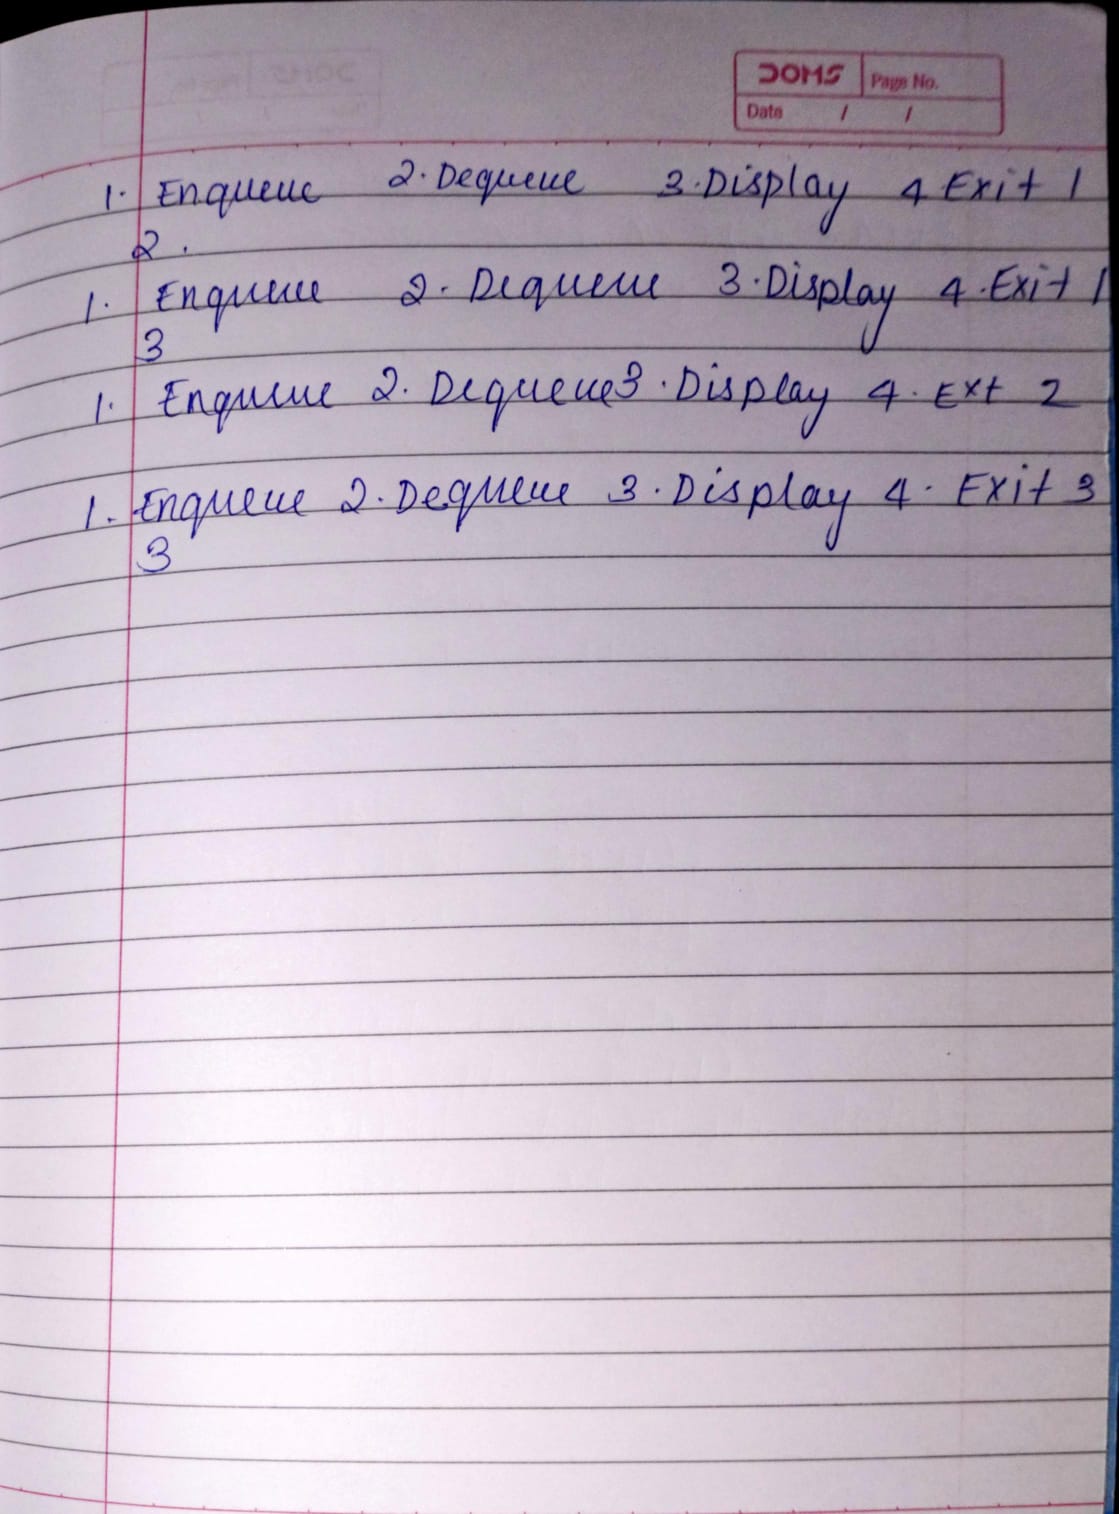 DOMS Page No.
Date / /
1. Enqueue 2. Dequeue 3. Display 4 Exit 1
2.
1. Enqueue 2. Dequeue 3. Display 4. Exit 1
3
1. Enqueue 2. Dequeue 3. Display 4. Ext 2
1. Enqueue 2. Dequeue 3. Display 4. Exit 3
3